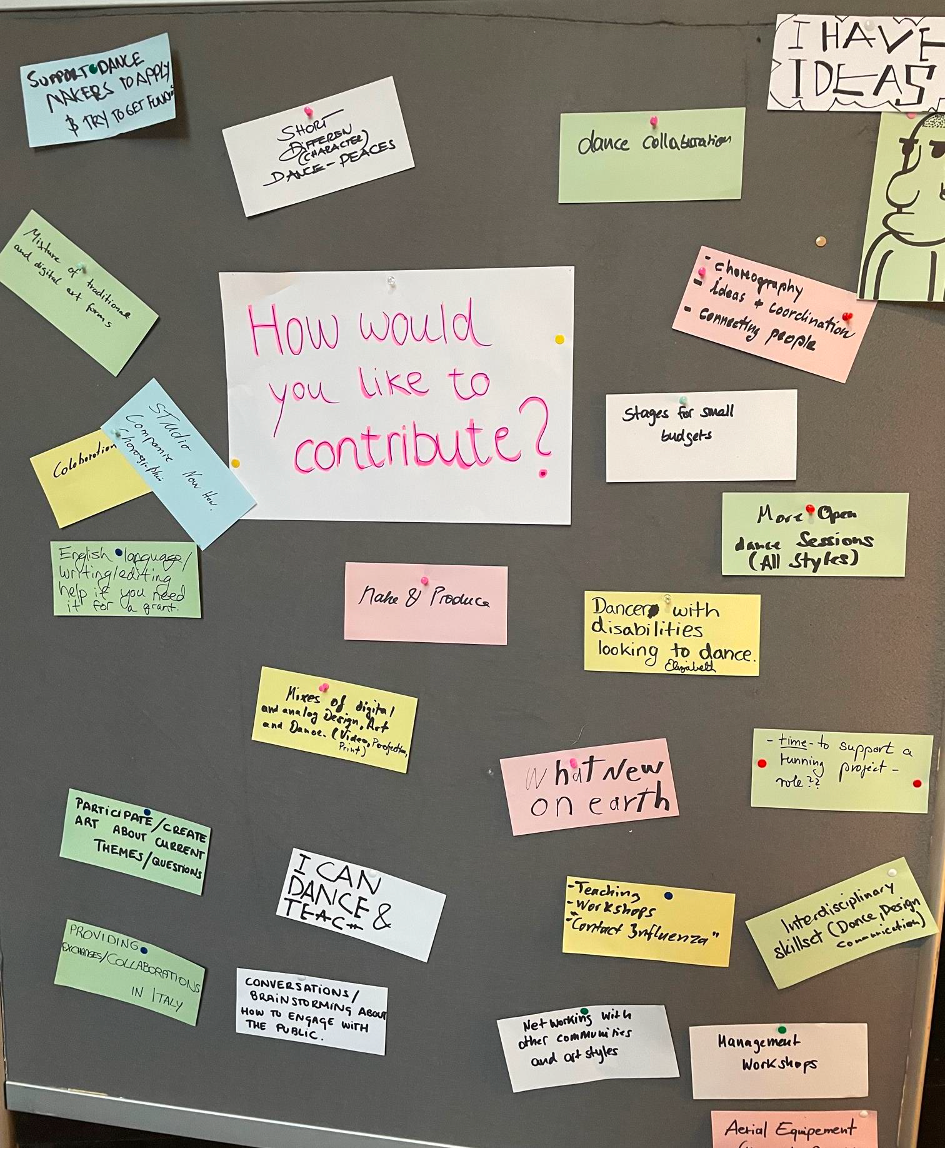 SUPPORT DANCE
MAKERS TO APPLY
& TRY TO GET FUNDI
SHORT
DIFFEREN
(CHARACTER)
DANCE-PEACES
dance collaboration
I HAVE
IDEAS
Mixture of traditional
and digital art forms
How would
you like to
contribute?
- choreography
- ideas + coordination
- connecting people
Colaboration
STudio
Companie Now How
Stages for small
budgets
More Open
dance Sessions
(All Styles)
English language/
writing/editing
help if you need
it for a grant.
Make & Produce
Dancer with
disabilities
looking to dance.
Elizabeth
Mixes of digital
and analog Design, Art
and Dance. (Video, Projection,
Print)
What New
on earth
- time - to support a
running project -
role??
PARTICIPATE/CREATE
ART ABOUT CURRENT
THEMES/QUESTIONS
I CAN
DANCE &
TEACH
- Teaching
- Workshops
- "Contact Influenza"
Interdisciplinary
skillset (Dance, Design
communication)
PROVIDING
EXCHANGES/COLLABORATIONS
IN ITALY
CONVERSATIONS/
BRAINSTORMING ABOUT
HOW TO ENGAGE WITH
THE PUBLIC.
Networking with
other communities
and art styles
Management
Workshops
Aerial Equipement